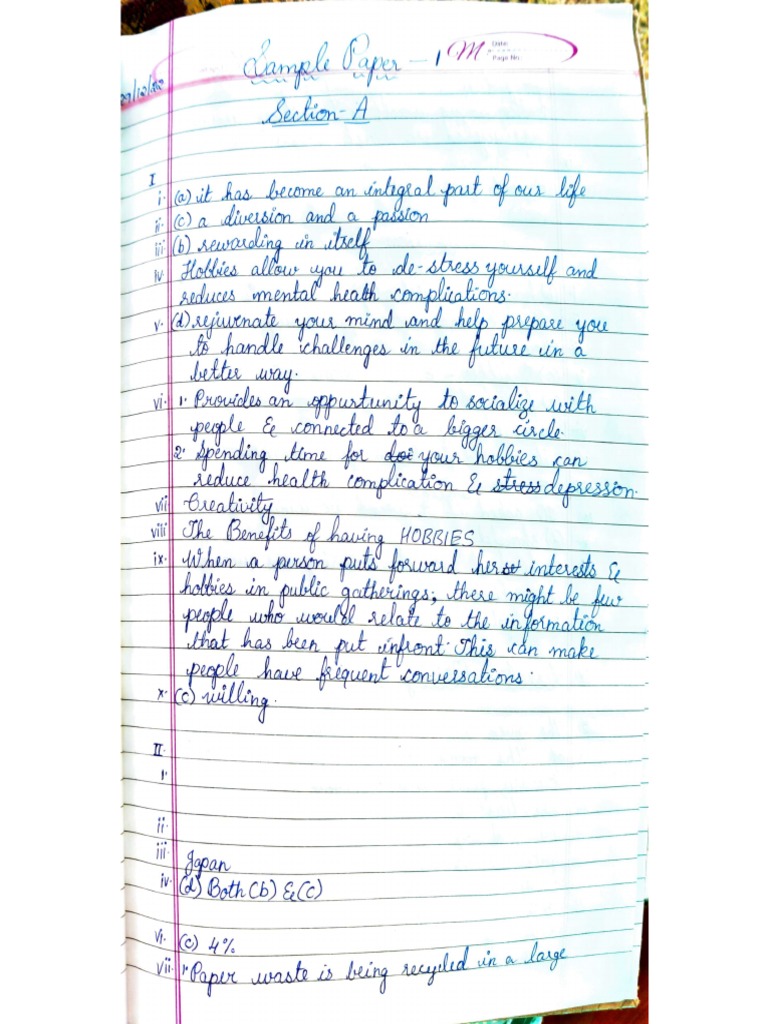 Sample Paper - 1
M Date:
Page No:
Section-A
I
i. (a) it has become an integral part of our life
ii. (c) a diversion and a passion
iii (b) rewarding in itself
iv. Hobbies allow you to de-stress yourself and
reduces mental health complications.
v. (d) rejuvenate your mind and help prepare you
to handle challenges in the future in a
better way.
vi. 1. Provides an oppurtunity to socialize with
people & connected to a bigger circle.
2. Spending time for your hobbies can
reduce health complication & stress depression.
vii Creativity
viii The Benefits of having HOBBIES
ix. When a person puts forward her interests &
hobbies in public gatherings; there might be few
people who would relate to the information
that has been put infront. This can make
people have frequent conversations.
x. (c) willing.
II.
1.
ii.
iii. Japan
iv. (d) Both (b) & (c)
vi. (c) 4%
vii. 1. Paper waste is being recycled in a large